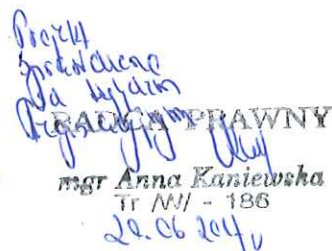 Projekt
sprawdzono
pod względem
RADCA PRAWNY
mgr Anna Kaniewska
Tr /W/ - 186
20.06